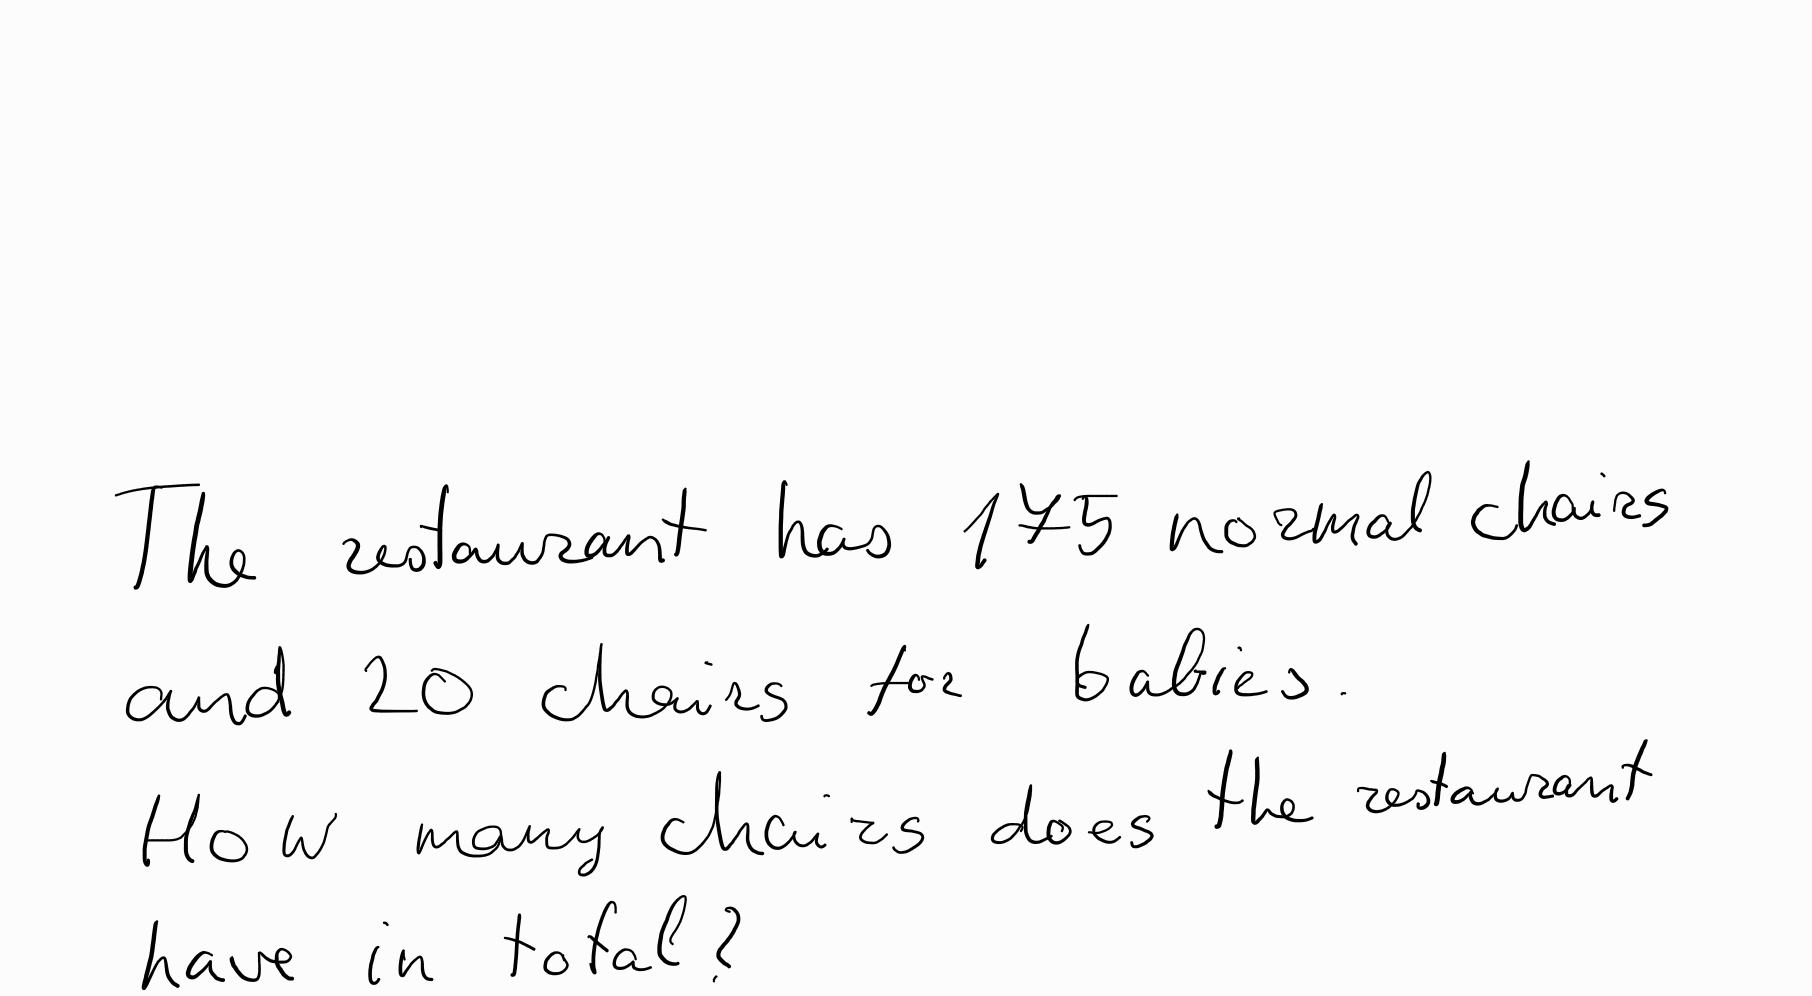 The restaurant has 175 normal chairs
and 20 chairs for babies.
How many chairs does the restaurant
have in total?